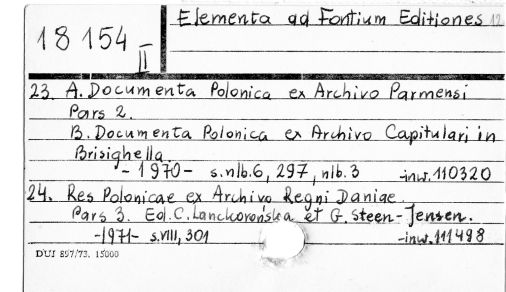 Elementa ad Fontium Editiones 12
18 154 II
23. A. Documenta Polonica ex Archivo Parmensi
Pars 2.
B. Documenta Polonica ex Archivo Capitulari in
Brisighella.
- 1970 - s.nlb.6, 297, nlb.3 -inw.110320
24. Res Polonicae ex Archivo Regni Daniae.
Pars 3. Ed. C. Lanckorońska et G. Steen-Jensen.
-1971- s.VIII, 301 -inw.111498
DUJ 897/73. 15000